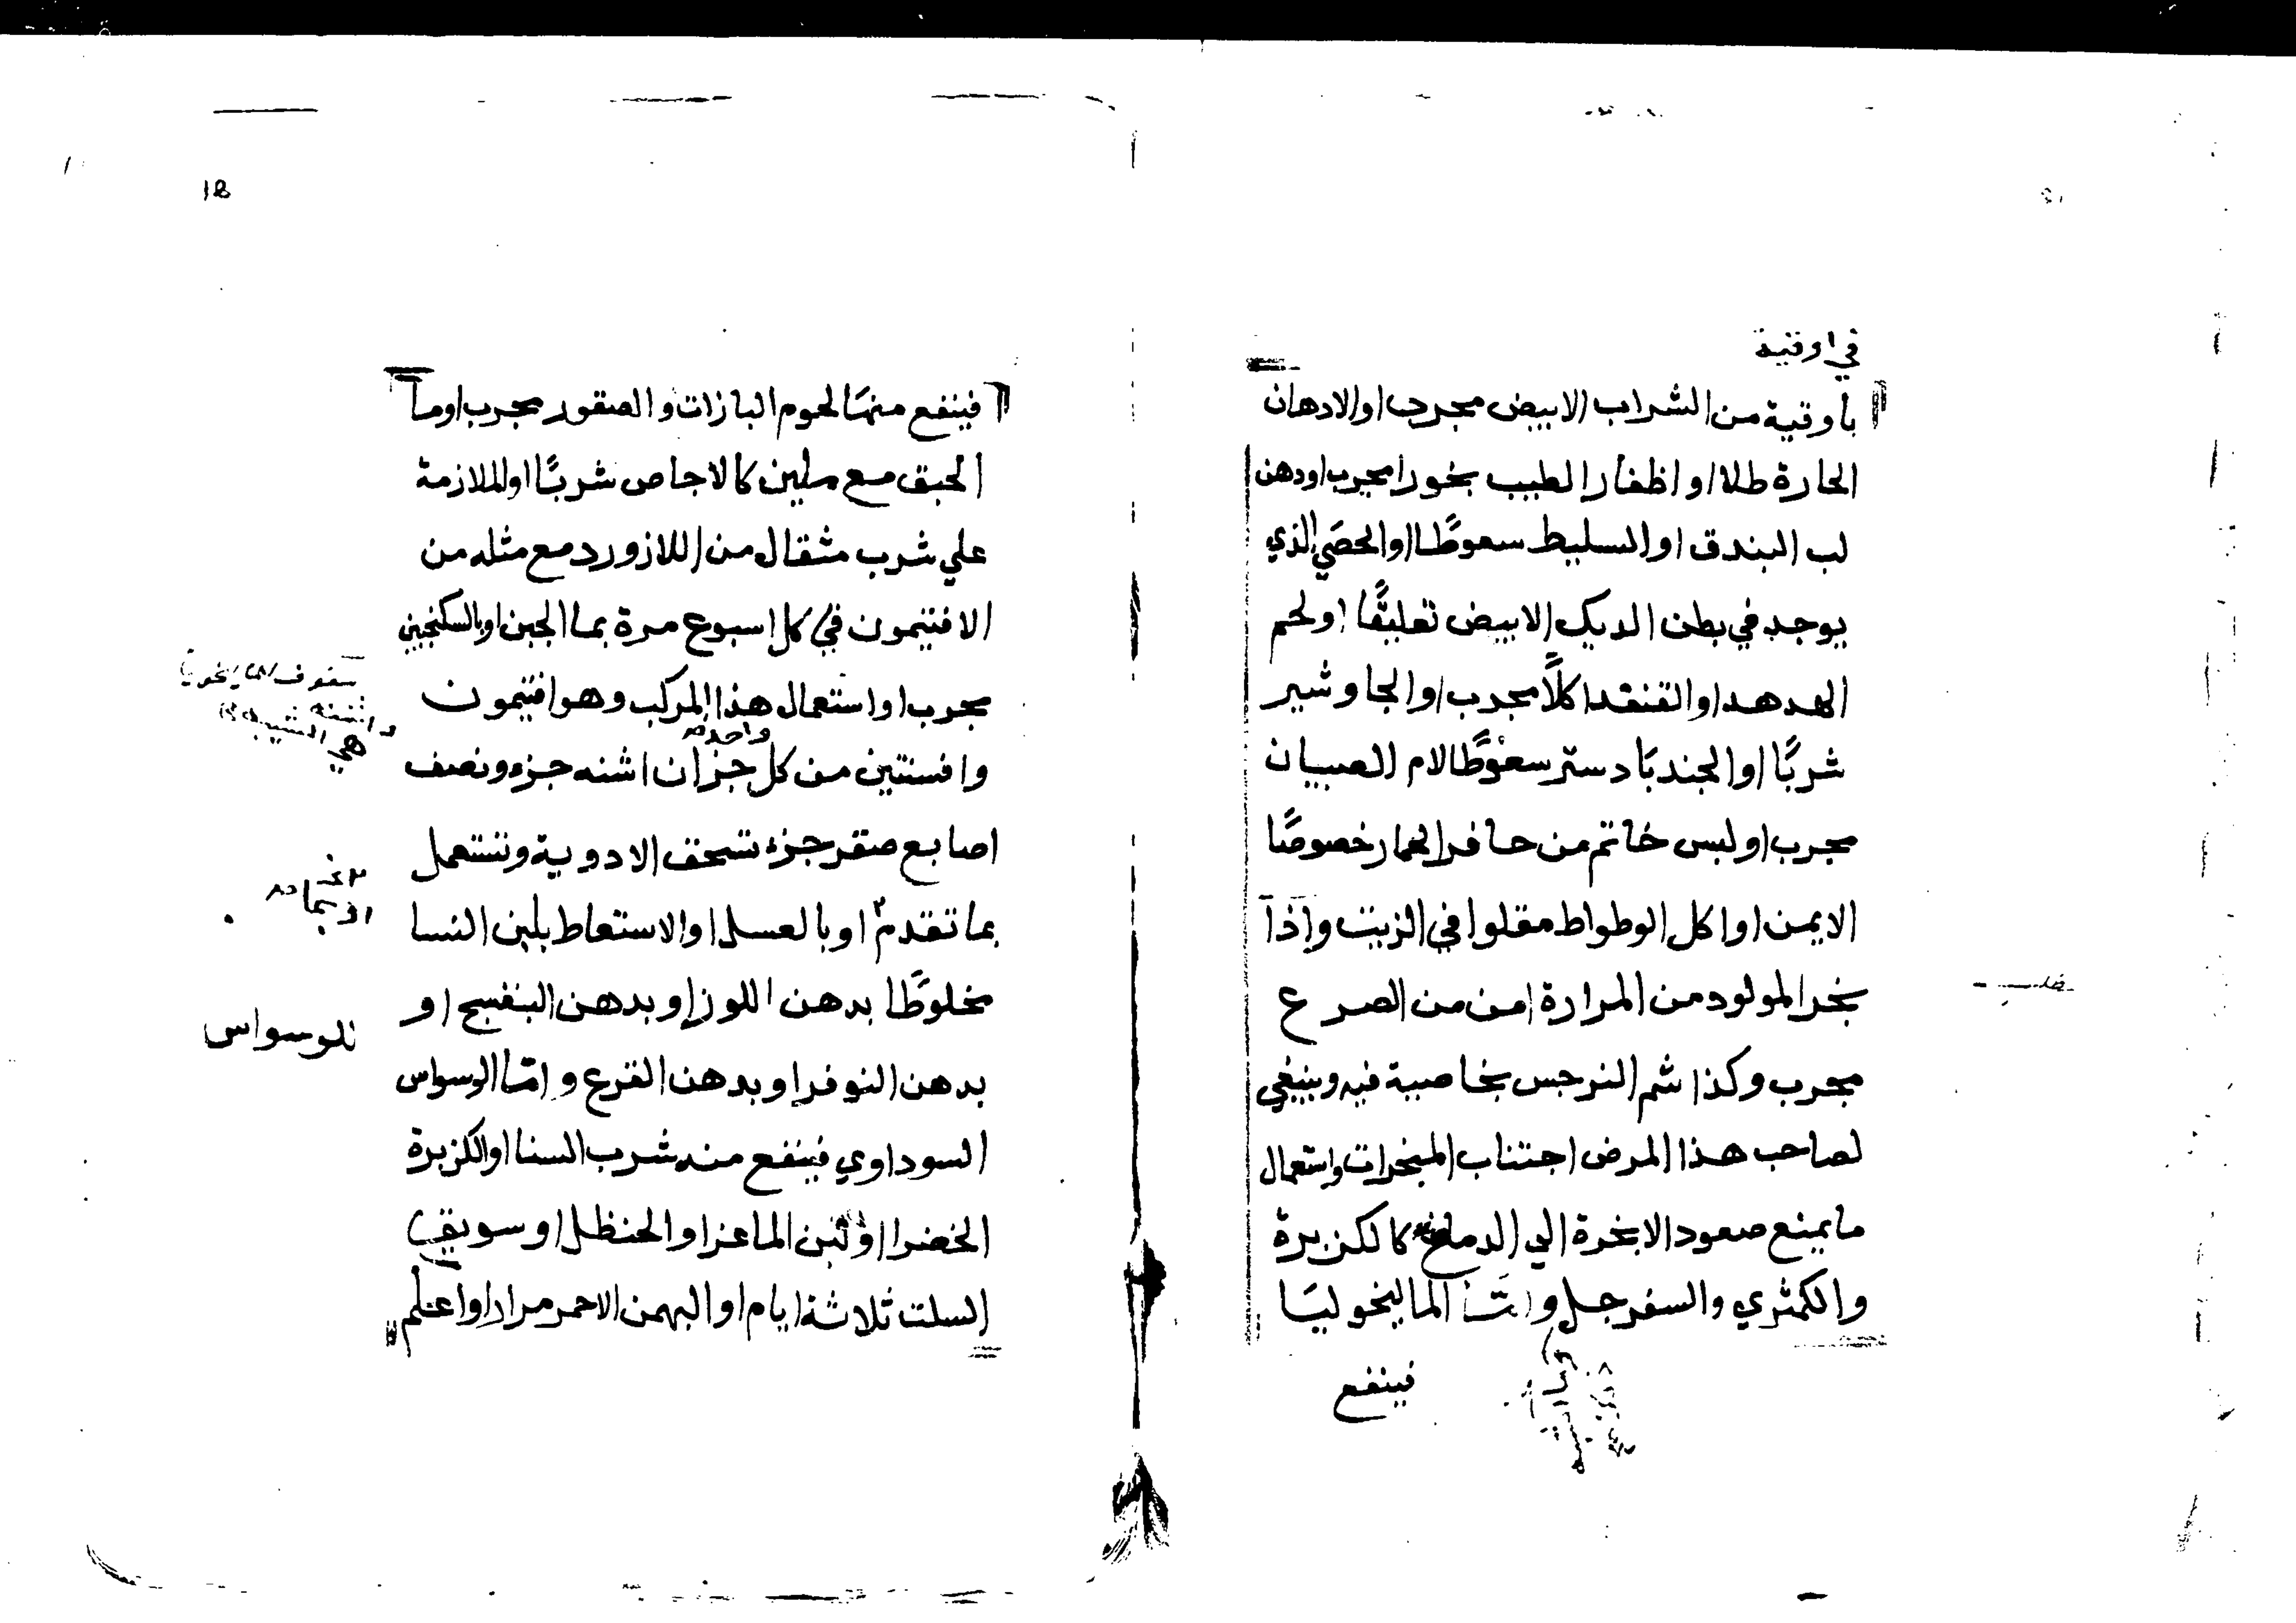 في اوقية
بأوقية من الشراب الابيض مجرب او الادهان
الحارة طلا او اظفار الطيب بخورا مجرب او دهن
لب البندق او السليط سعوطًا او الحصَي الذي
يوجد في بطن الديك الابيض تعليقًا او لحم
الهدهد او القنفد اكلًا مجرب او الجاوشير
شربًا او الجندبَادستر سعوطًا لام الصبيان
مجرب او لبس خاتم من حافر الحمار خصوصًا
الايمن او اكل الوطواط مقلوا في الزيت واذا
بخر المولود من المرارة امن من الصرع
مجرب وكذا شم النرجس بخاصية فيه وينبغي
لصاحب هذا المرض اجتناب المبخرات واستعمال
ما يمنع صعود الابخرة الي الدماغ كالكزبرة
والكمثري والسفرجل وامّا الماليخوليَا
فينفع
18
فينفع منهَا لحوم البازات والصقور مجرب او ما
الحبق مع ملين كالاجاص شربًا او الملازمة
علي شرب مثقال من اللازورد مع مثله من
الافتيمون في كل اسبوع مرة بما الجبن او بالسكنجبين
مجرب او استعمال هذا المركب وهو افتيمون
وافسنتين من كل جزان اشنه جزء ونصف
واحد
اصابع صقر جزء تسحق الادوية وتستعمل
بما تقدم او بالعسل او الاستعاط بلبن النسا
مخلوطًا بدهن اللوز او بدهن البنفسج او
بدهن النوفر او بدهن القرع وامّا الوسواس
السوداوي فينفع منه شرب السنا او الكزبرة
الخضرا او لبن الماعز او الحنظل او سويق
السلت ثلاثة ايام او البهمن الاحمر مرارا واعلم
سفوف الماليخوليا
واشنه
هي الشيبه
للوسواس